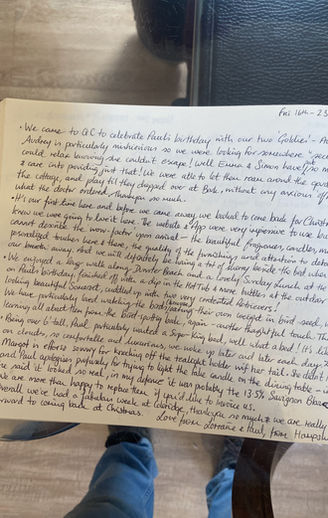 Fri 16th - 23
• We came to QC to celebrate Paul's birthday with our two 'Goldies' - A
Audrey is particularly mischievous so we were looking for somewhere 'sec
could relax knowing she couldn't escape! Well Emma & Simon have put so m
& care into providing just that! We were able to let them roam around the
the cottage, and play till they dropped over at Bark, without any anxious
what the doctor ordered, thankyou so much.
• It's our first time here and before we came away we booked to come back for Christm
knew we were going to love it here. The website & app were very impressive to use
cannot describe the wow-factor upon arrival - the beautiful fragrances, candles,
personalised touches here & there, the quality of the furnishings and attention to
our breath away that we will definitely be
• We enjoyed a large walk along Dunster Beach and a lovely Sunday Lunch at the
on Paul's birthday, finished off with a dip in the Hot Tub & many bubbles at the outdoor
looking beautiful Somerset, cuddled up with two very contented Retrievers!
We have particularly loved watching the birds eating their own weight in bird seed,
learning all about them from the bird-spotting book, again - another thoughtful touch. Th
• Being over 6' tall, Paul particularly wanted a Super-king bed, well what a bed! It's like
on clouds, so comfortable and luxurious, we woke up later and later each day.
Margot is ever so sorry for knocking off the tealight holder with her tail. She didn't
and Paul apologises profusely for trying to light the fake candle on the dining table -
he said it looked so real, in my defence it was probably the 13.5% Sauvignon Blanc
We are more than happy to replace them if you'd like to invoice us.
Overall we've had a fabulous week at
forward to coming back at Christmas.
thankyou so much & we are really
Love from Lorraine & Paul, from Hampsh